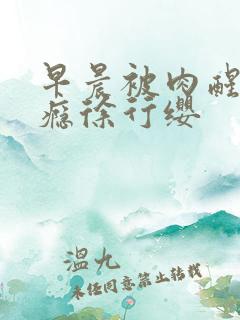 早晨被肉醒
瘾徐行缨
温九
未经同意禁止转载